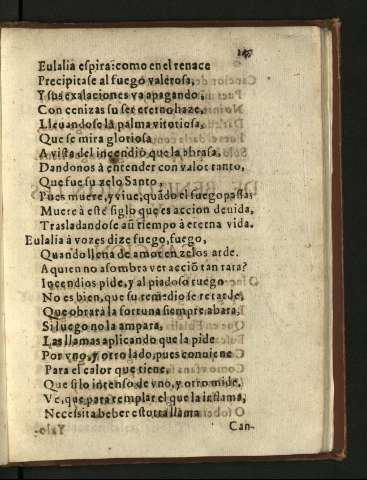 Eulalia espira: como en el renace
Precipitase al fuego valerosa,
Y sus exalaciones va apagando,
Con cenizas su ser eterno haze,
Lleuandose la palma vitotiosa,
Que se mira gloriosa
A vista del incendio que la abrasa,
Dandonos à entender con valor tanto,
Que fue su zelo Santo,
Pues muere, y viue, quãdo el fuego passa:
Muere à este siglo que es accion deuida,
Trasladandose aũ tiempo à eterna vida.
Eulalia à vozes dize fuego, fuego,
Quando llena de amor en zelos arde.
A quien no asombra ver acciõ tan rara?
Incendios pide, y al piadoso ruego
No es bien, que su remedio se retarde,
Que obrarà la fortuna siempre abara,
Si luego no la ampara,
Las llamas aplicando que la pide
Por vno, y otro lado, pues conuiene
Para el calor que tiene,
Que si lo intenso de vno, y otro mide,
Ve, que para templar el que la inflama,
Necessita beber estotra llama
Can-